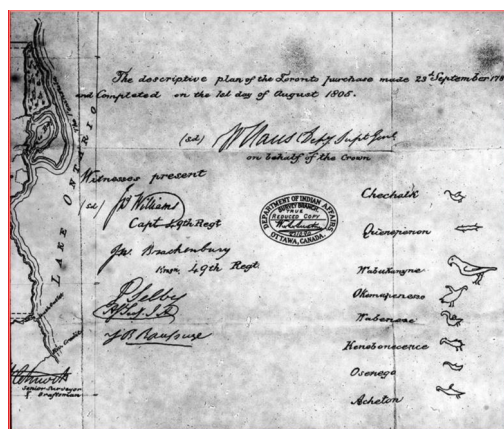 The descriptive plan of the Toronto purchase made 23ᵈ September 178
and Completed on the 1st day of August 1805.
(sd) W Claus Depy Supt Genl
on behalf of the Crown
Witnesses present
(sd) Williams
Capt 49th Regt
Jno. Brackenbury
Ensn. 49th Regt.
P. Selby
J B Rousseau
LAKE ONTARIO
DEPARTMENT OF INDIAN AFFAIRS
SURVEY BRANCH
TRUE
REDUCED COPY
OTTAWA, CANADA.
Chechalk
Quienepenon
Wabukanyne
Okemapenesse
Wabenose
Kenebonecence
Osenego
Acheton
Senior Surveyor
& Draftsman